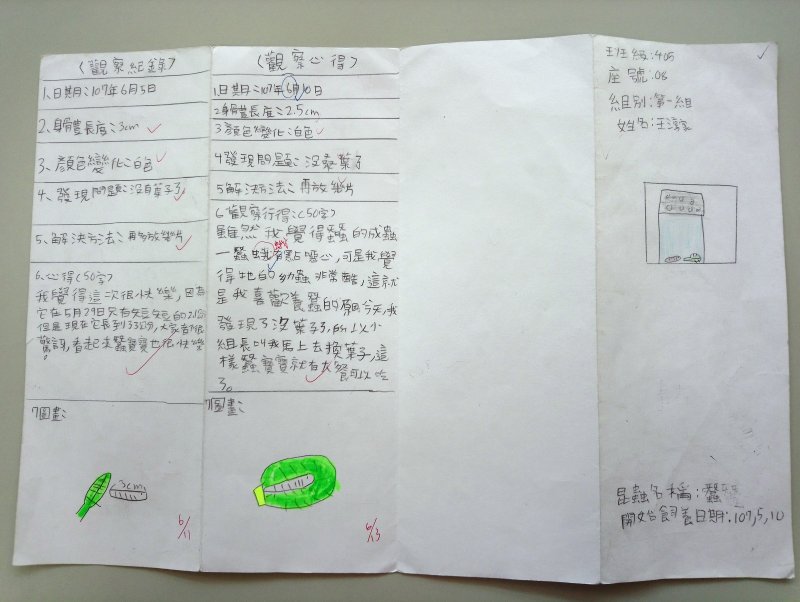 (觀察紀錄)
1、日期:107年6月5日
2、身體長度:3cm
3、顏色變化:白色
4、發現問題:沒有葉子了
5、解決方法:再多放幾片
6、心得(50字)
我覺得這次很快樂,因為
它在5月29日只有短短的2公分
但是現在它長到3公分,大家都很
驚訝,看起來蠶寶寶也很快樂
。
7圖畫:
3cm
6/11
(觀察心得)
1、日期:107年6月10日
2身體長度:2.5cm
3顏色變化:白色
4發現問題:沒桑葉子
5解決方法:再放幾片
6觀察行得:(50字)
雖然我覺得蠶的成蟲
一蠶蛾有點噁心,可是我覺
得地的幼蟲非常酷,這就
是我喜歡養蠶的原因今天,我
發現了沒葉子,所以小
組長叫我馬上去換葉子,這
樣蠶寶寶就有大餐可以吃
了。
7圖畫:
6/13
班級:405
座號:08
組別:第一組
昆蟲名稱:蠶寶
開始飼養日期:107,5,10